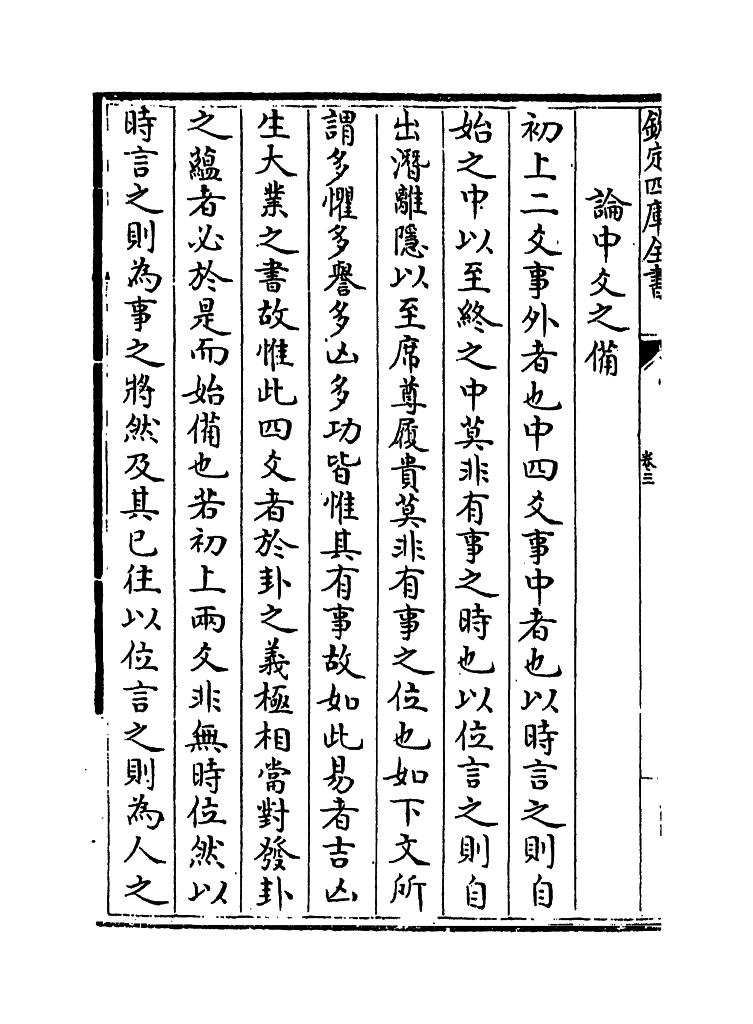 欽定四庫全書
卷三
論中爻之備
初上二爻事外者也中四爻事中者也以時言之則自
始之中以至終之中莫非有事之時也以位言之則自
出潛離隱以至席尊履貴莫非有事之位也如下文所
謂多懼多譽多凶多功皆惟其有事故如此易者吉凶
生大業之書故惟此四爻者於卦之義極相當對發卦
之蘊者必於是而始備也若初上兩爻非無時位然以
時言之則為事之將然及其已往以位言之則為人之